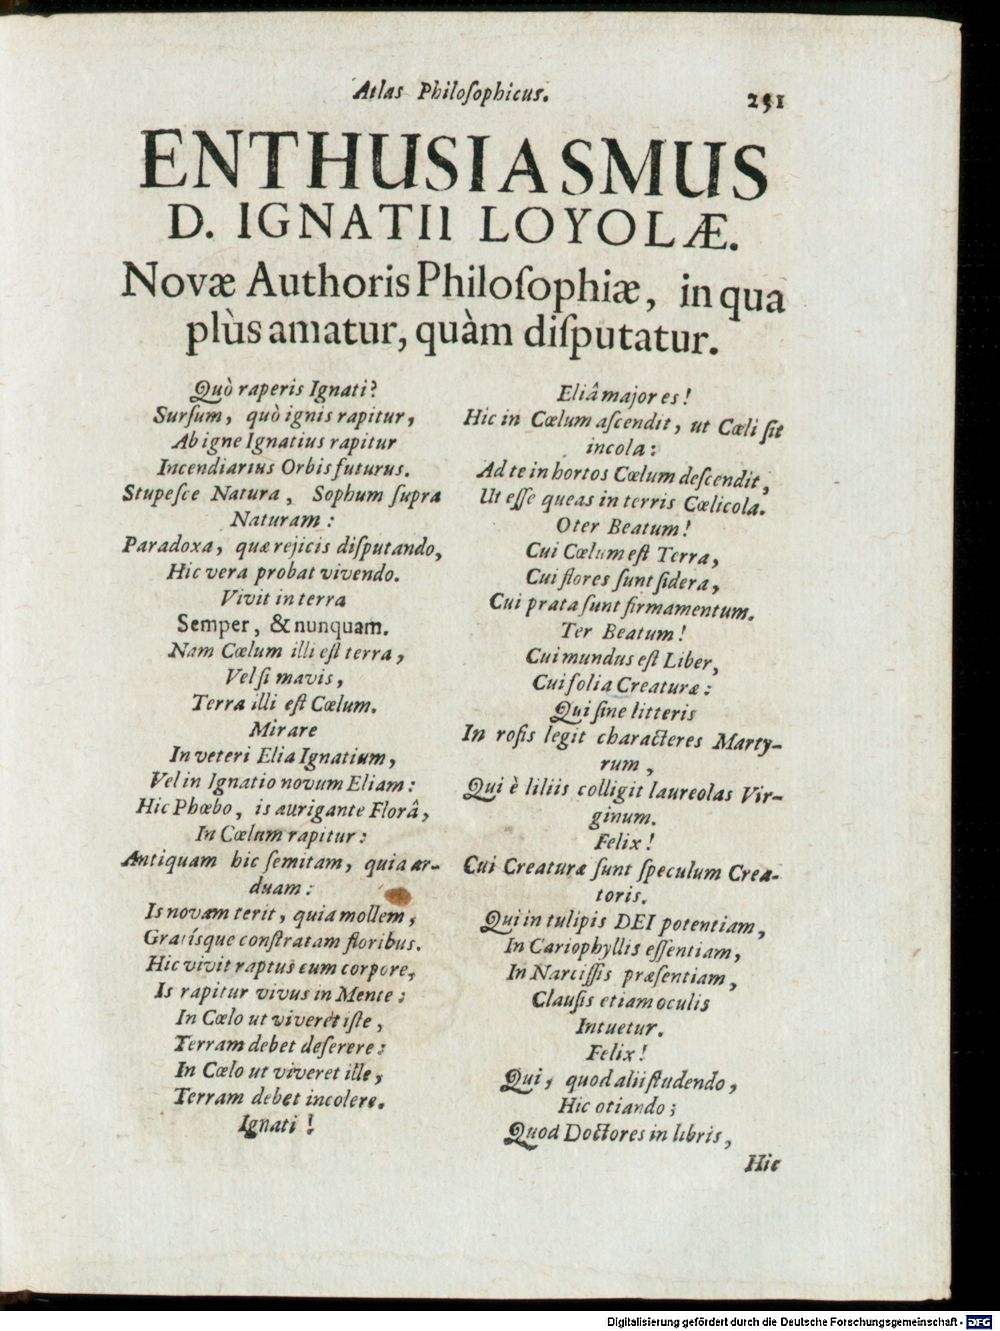 Atlas Philoſophicus. 251
ENTHUSIASMUS
D. IGNATII LOYOLÆ.
Novæ Authoris Philoſophiæ, in qua
plùs amatur, quàm diſputatur.
Quò raperis Ignati?
Surſum, quò ignis rapitur,
Ab igne Ignatius rapitur
Incendiarius Orbis futurus.
Stupeſce Natura, Sophum ſupra
Naturam:
Paradoxa, quæ rejicis diſputando,
Hic vera probat vivendo.
Vivit in terra
Semper, & nunquam.
Nam Cœlum illi eſt terra,
Vel ſi mavis,
Terra illi eſt Cœlum.
Mirare
In veteri Elia Ignatium,
Vel in Ignatio novum Eliam:
Hic Phœbo, is aurigante Florâ,
In Cœlum rapitur:
Antiquam hic ſemitam, quia ar-
duam:
Is novam terit, quia mollem,
Gratísque conſtratam floribus.
Hic vivit raptus cum corpore,
Is rapitur vivus in Mente:
In Cœlo ut viveret iſte,
Terram debet deſerere:
In Cœlo ut viveret ille,
Terram debet incolere.
Ignati!
Eliâ major es!
Hic in Cœlum aſcendit, ut Cœli ſit
incola:
Ad te in hortos Cœlum deſcendit,
Ut eſſe queas in terris Cœlicola.
O ter Beatum!
Cui Cœlum eſt Terra,
Cui flores ſunt ſidera,
Cui prata ſunt firmamentum.
Ter Beatum!
Cui mundus eſt Liber,
Cui folia Creaturæ:
Qui ſine litteris
In roſis legit characteres Marty-
rum,
Qui è liliis colligit laureolas Vir-
ginum.
Felix!
Cui Creaturæ ſunt ſpeculum Crea-
toris.
Qui in tulipis DEI potentiam,
In Cariophyllis eſſentiam,
In Narciſſis præſentiam,
Clauſis etiam oculis
Intuetur.
Felix!
Qui, quod alii ſtudendo,
Hic otiando;
Quod Doctores in libris,
Hic
Digitalisierung gefördert durch die Deutsche Forschungsgemeinschaft - DFG